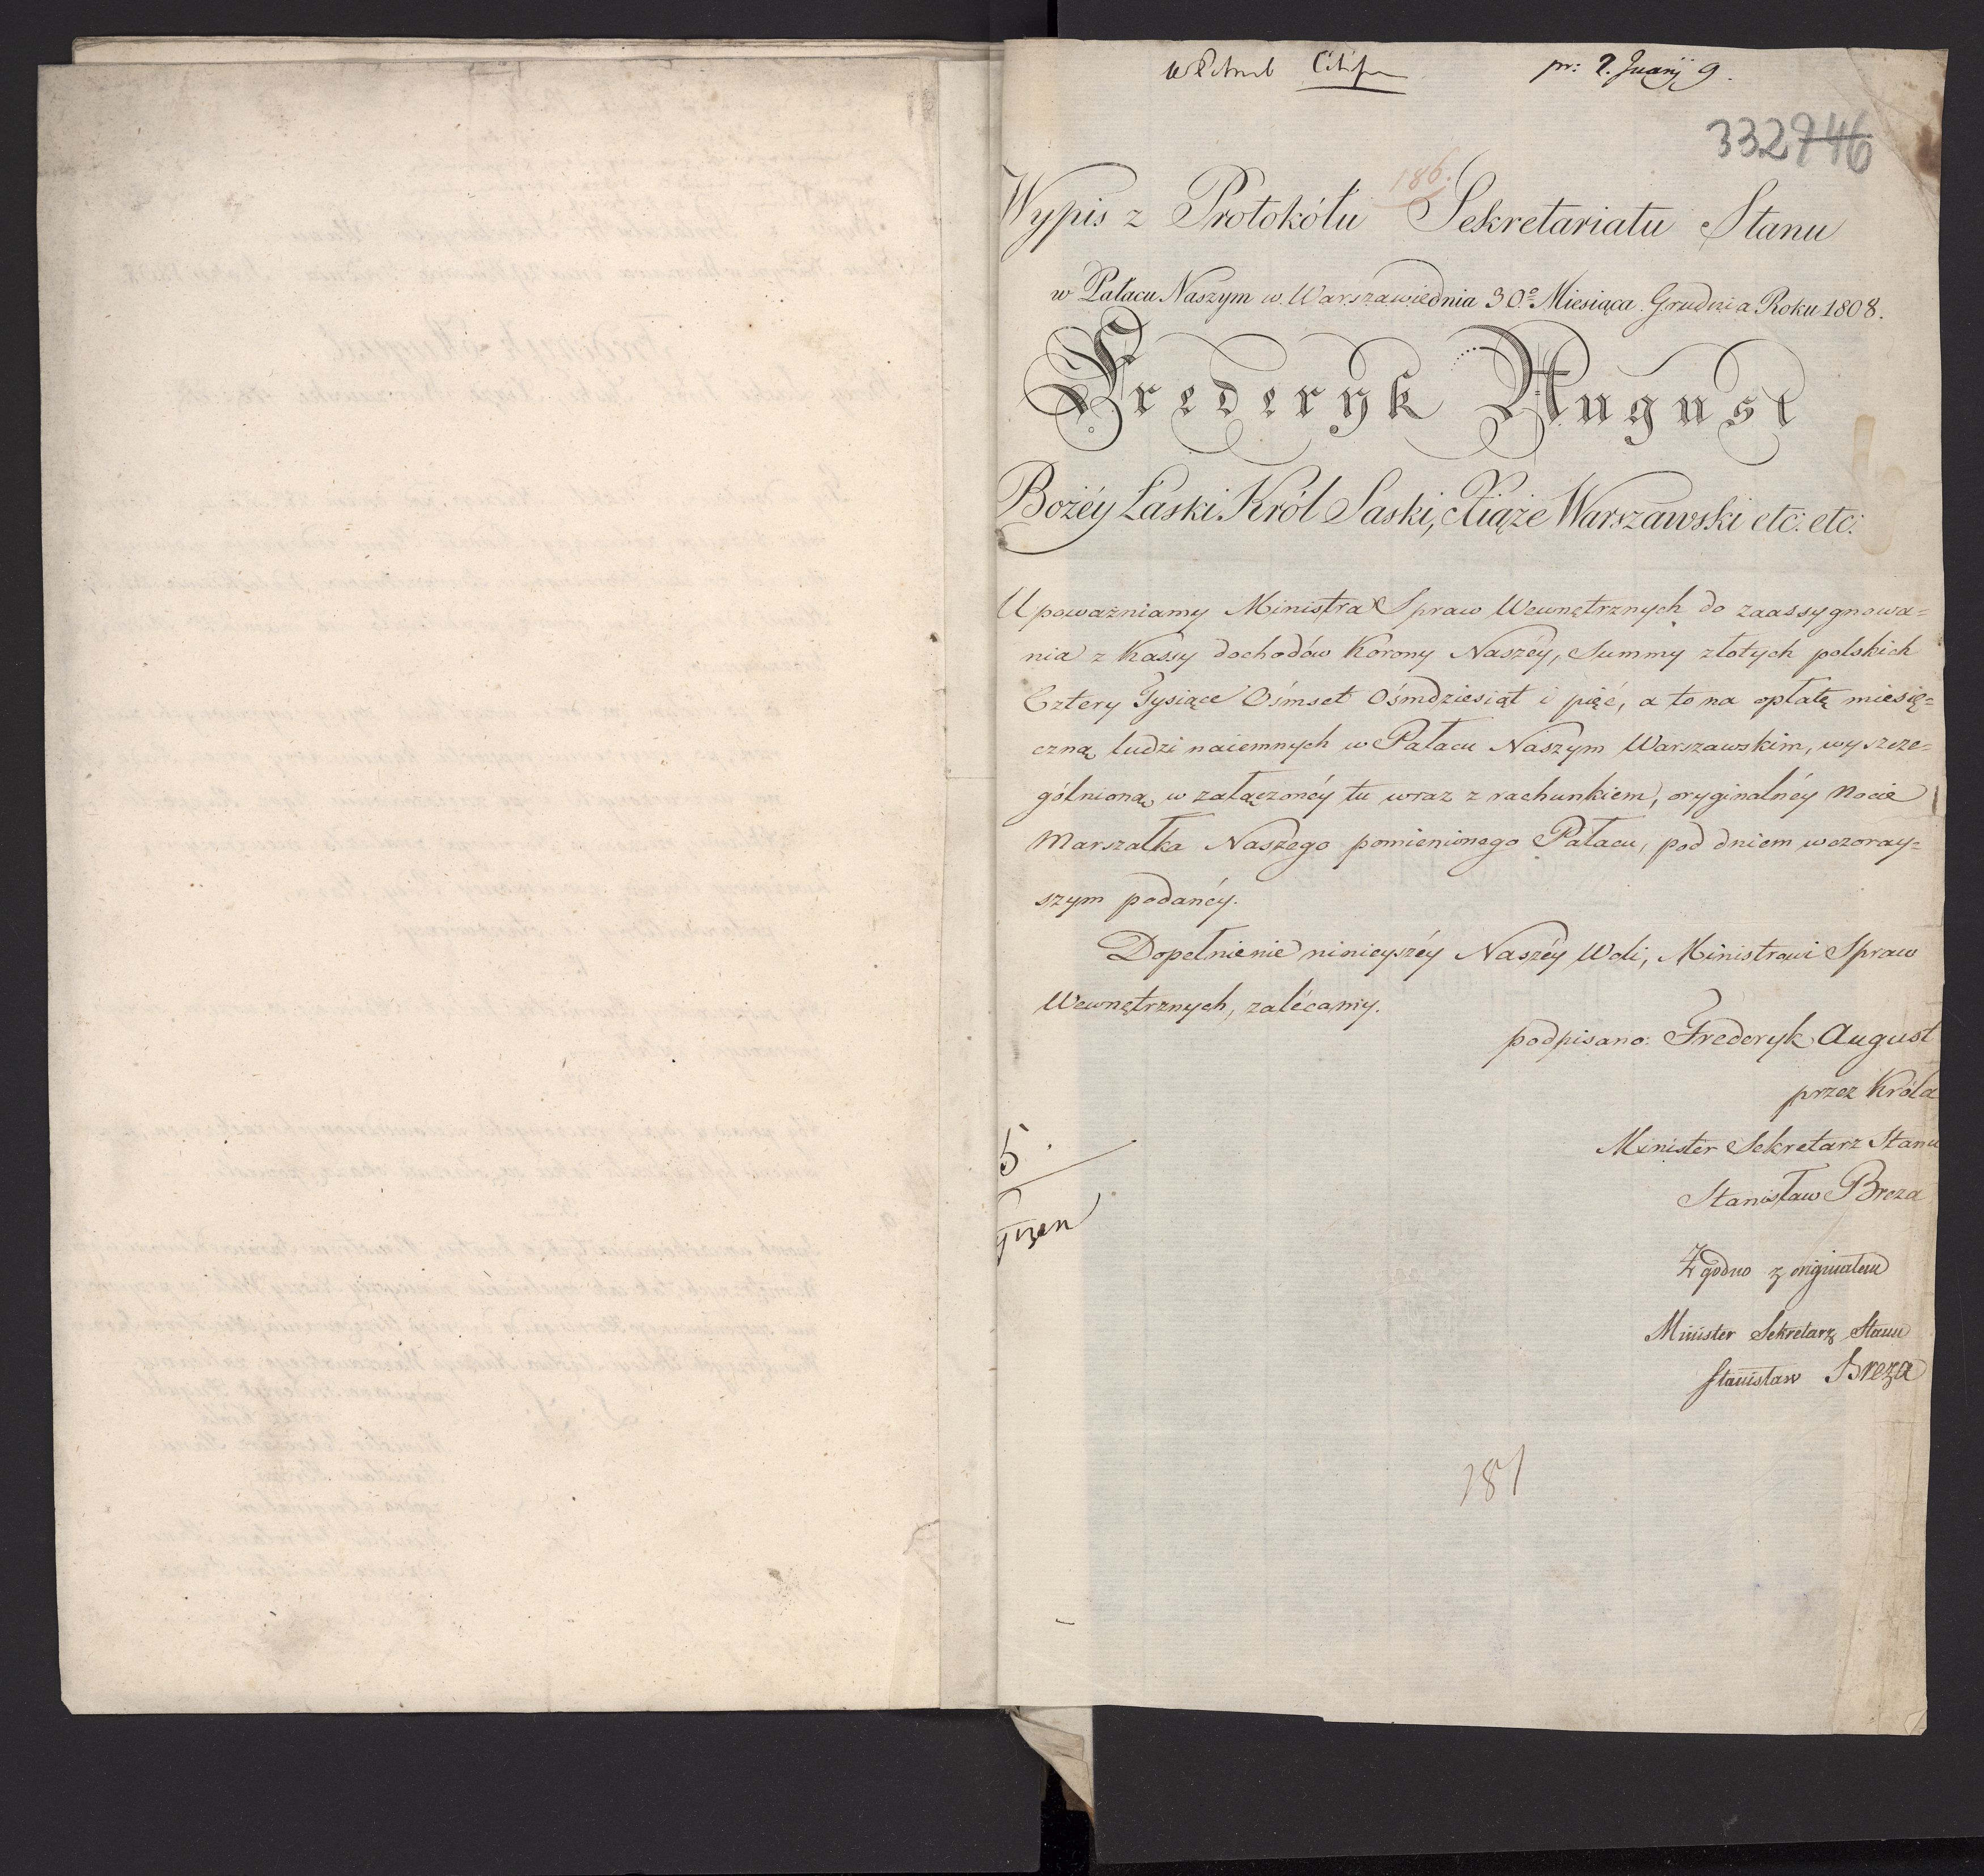 pr: 2. Juarij 9.
332746
186.
Wypis z Protokółu Sekretariatu Stanu
w Pałacu Naszym w Warszawie dnia 30º Miesiąca Grudnia Roku 1808.
Frederyk August
Bożéy Łaski Król Saski, Xiąże Warszawski etc: etc:
Upoważniamy Ministra Spraw Wewnętrznych do zaassygnowa=
nia z Kassy dochodów Korony Naszéy, Summy złotych polskich
Cztery Tysiące Ośmset Ośmdziesiąt i pięć, a to na opłatę miesię=
czną ludzi naiemnych w Pałacu Naszym Warszawskim, wyszcze=
gólnioną w załączonéy tu wraz z rachunkiem, oryginalnéy Nocie
Marszałka Naszego pomienionego Pałacu, pod dniem wczoray=
szym podanéy.
Dopełnienie ninieyszéy Naszéy Woli, Ministrowi Spraw
Wewnętrznych, zalécamy.
podpisano: Frederyk August
przez Króla
Minister Sekretarz Stanu
Stanisław Breza
5
Zgodno z originałem
Minister Sekretarz Stanu
Stanisław Breza
181